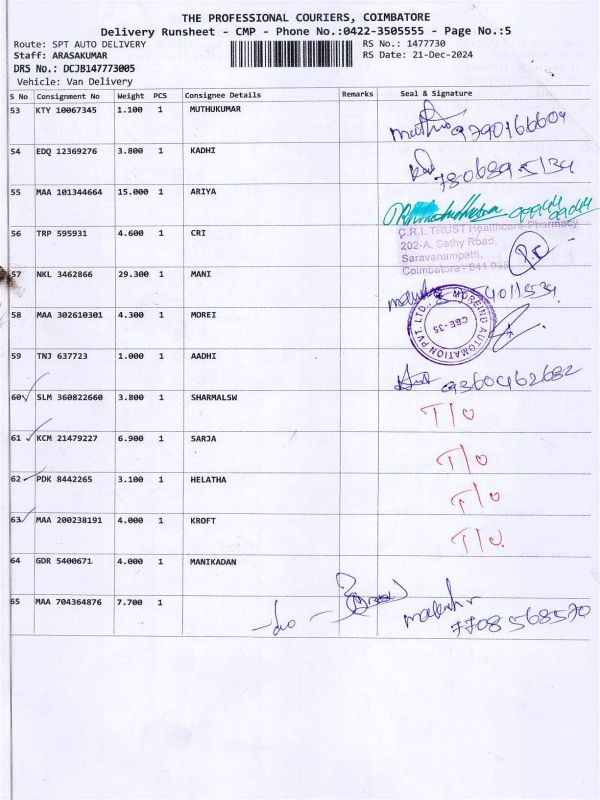 THE PROFESSIONAL COURIERS, COIMBATORE
Delivery Runsheet - CMP - Phone No.:0422-3505555 - Page No.:5
Route: SPT AUTO DELIVERY
RS No.: 1477730
Staff: ARASAKUMAR
RS Date: 21-Dec-2024
DRS No.: DCJB147773005
Vehicle: Van Delivery
S No Consignment No Weight PCS Consignee Details Remarks Seal & Signature
53 KTY 10067345 1.100 1 MUTHUKUMAR
54 EDQ 12369276 3.800 1 KADHI
55 MAA 101344664 15.000 1 ARIYA
56 TRP 595931 4.600 1 CRI
C.R.I. TRUST Healthcare Pharmacy
202-A, Sathy Road,
Saravanampatti,
Coimbatore - 641 035
57 NKL 3462866 29.300 1 MANI
58 MAA 302610301 4.300 1 MOREI
MOREIND AUTOMATION PVT. LTD.,
CBE-35
59 TNJ 637723 1.000 1 AADHI
60 SLM 360822660 3.800 1 SHARMALSW T/O
61 KCM 21479227 6.900 1 SARJA T/O
62 PDK 8442265 3.100 1 HELATHA T/O
63 MAA 200238191 4.000 1 KROFT T/O
64 GDR 5400671 4.000 1 MANIKADAN
65 MAA 704364876 7.700 1
7708568570